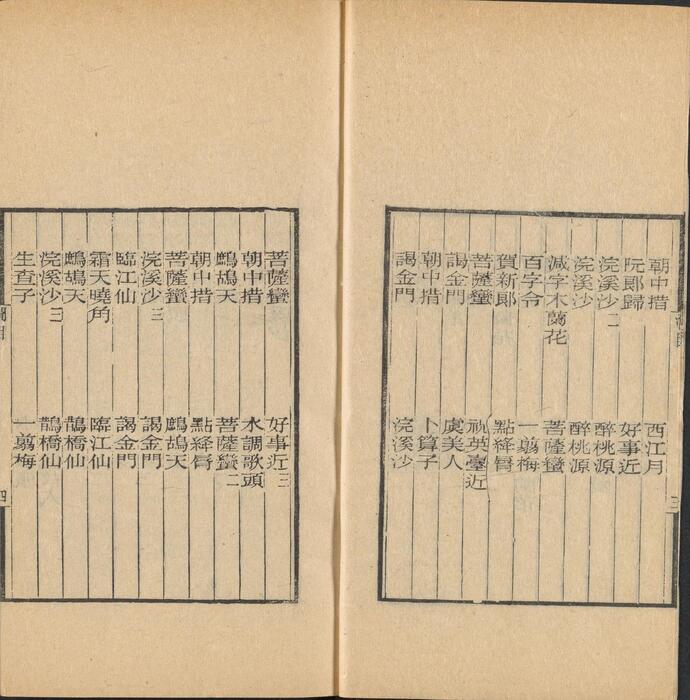 朝中措 西江月
阮郎歸 好事近
浣溪沙二 醉桃源
浣溪沙 醉桃源
減字木蘭花 菩薩蠻
百字令 一翦梅
賀新郞 點絳脣
菩薩蠻 祝英臺近
謁金門 虞美人
朝中措 卜算子
謁金門 浣溪沙
菩薩蠻 好事近三
朝中措 水調歌頭
鷓鴣天 菩薩蠻二
朝中措 點絳脣
菩薩蠻 鷓鴣天
浣溪沙三 謁金門
臨江仙 謁金門
霜天曉角 臨江仙
鷓鴣天 鵲橋仙
浣溪沙二 鵲橋仙
生查子 一翦梅
四